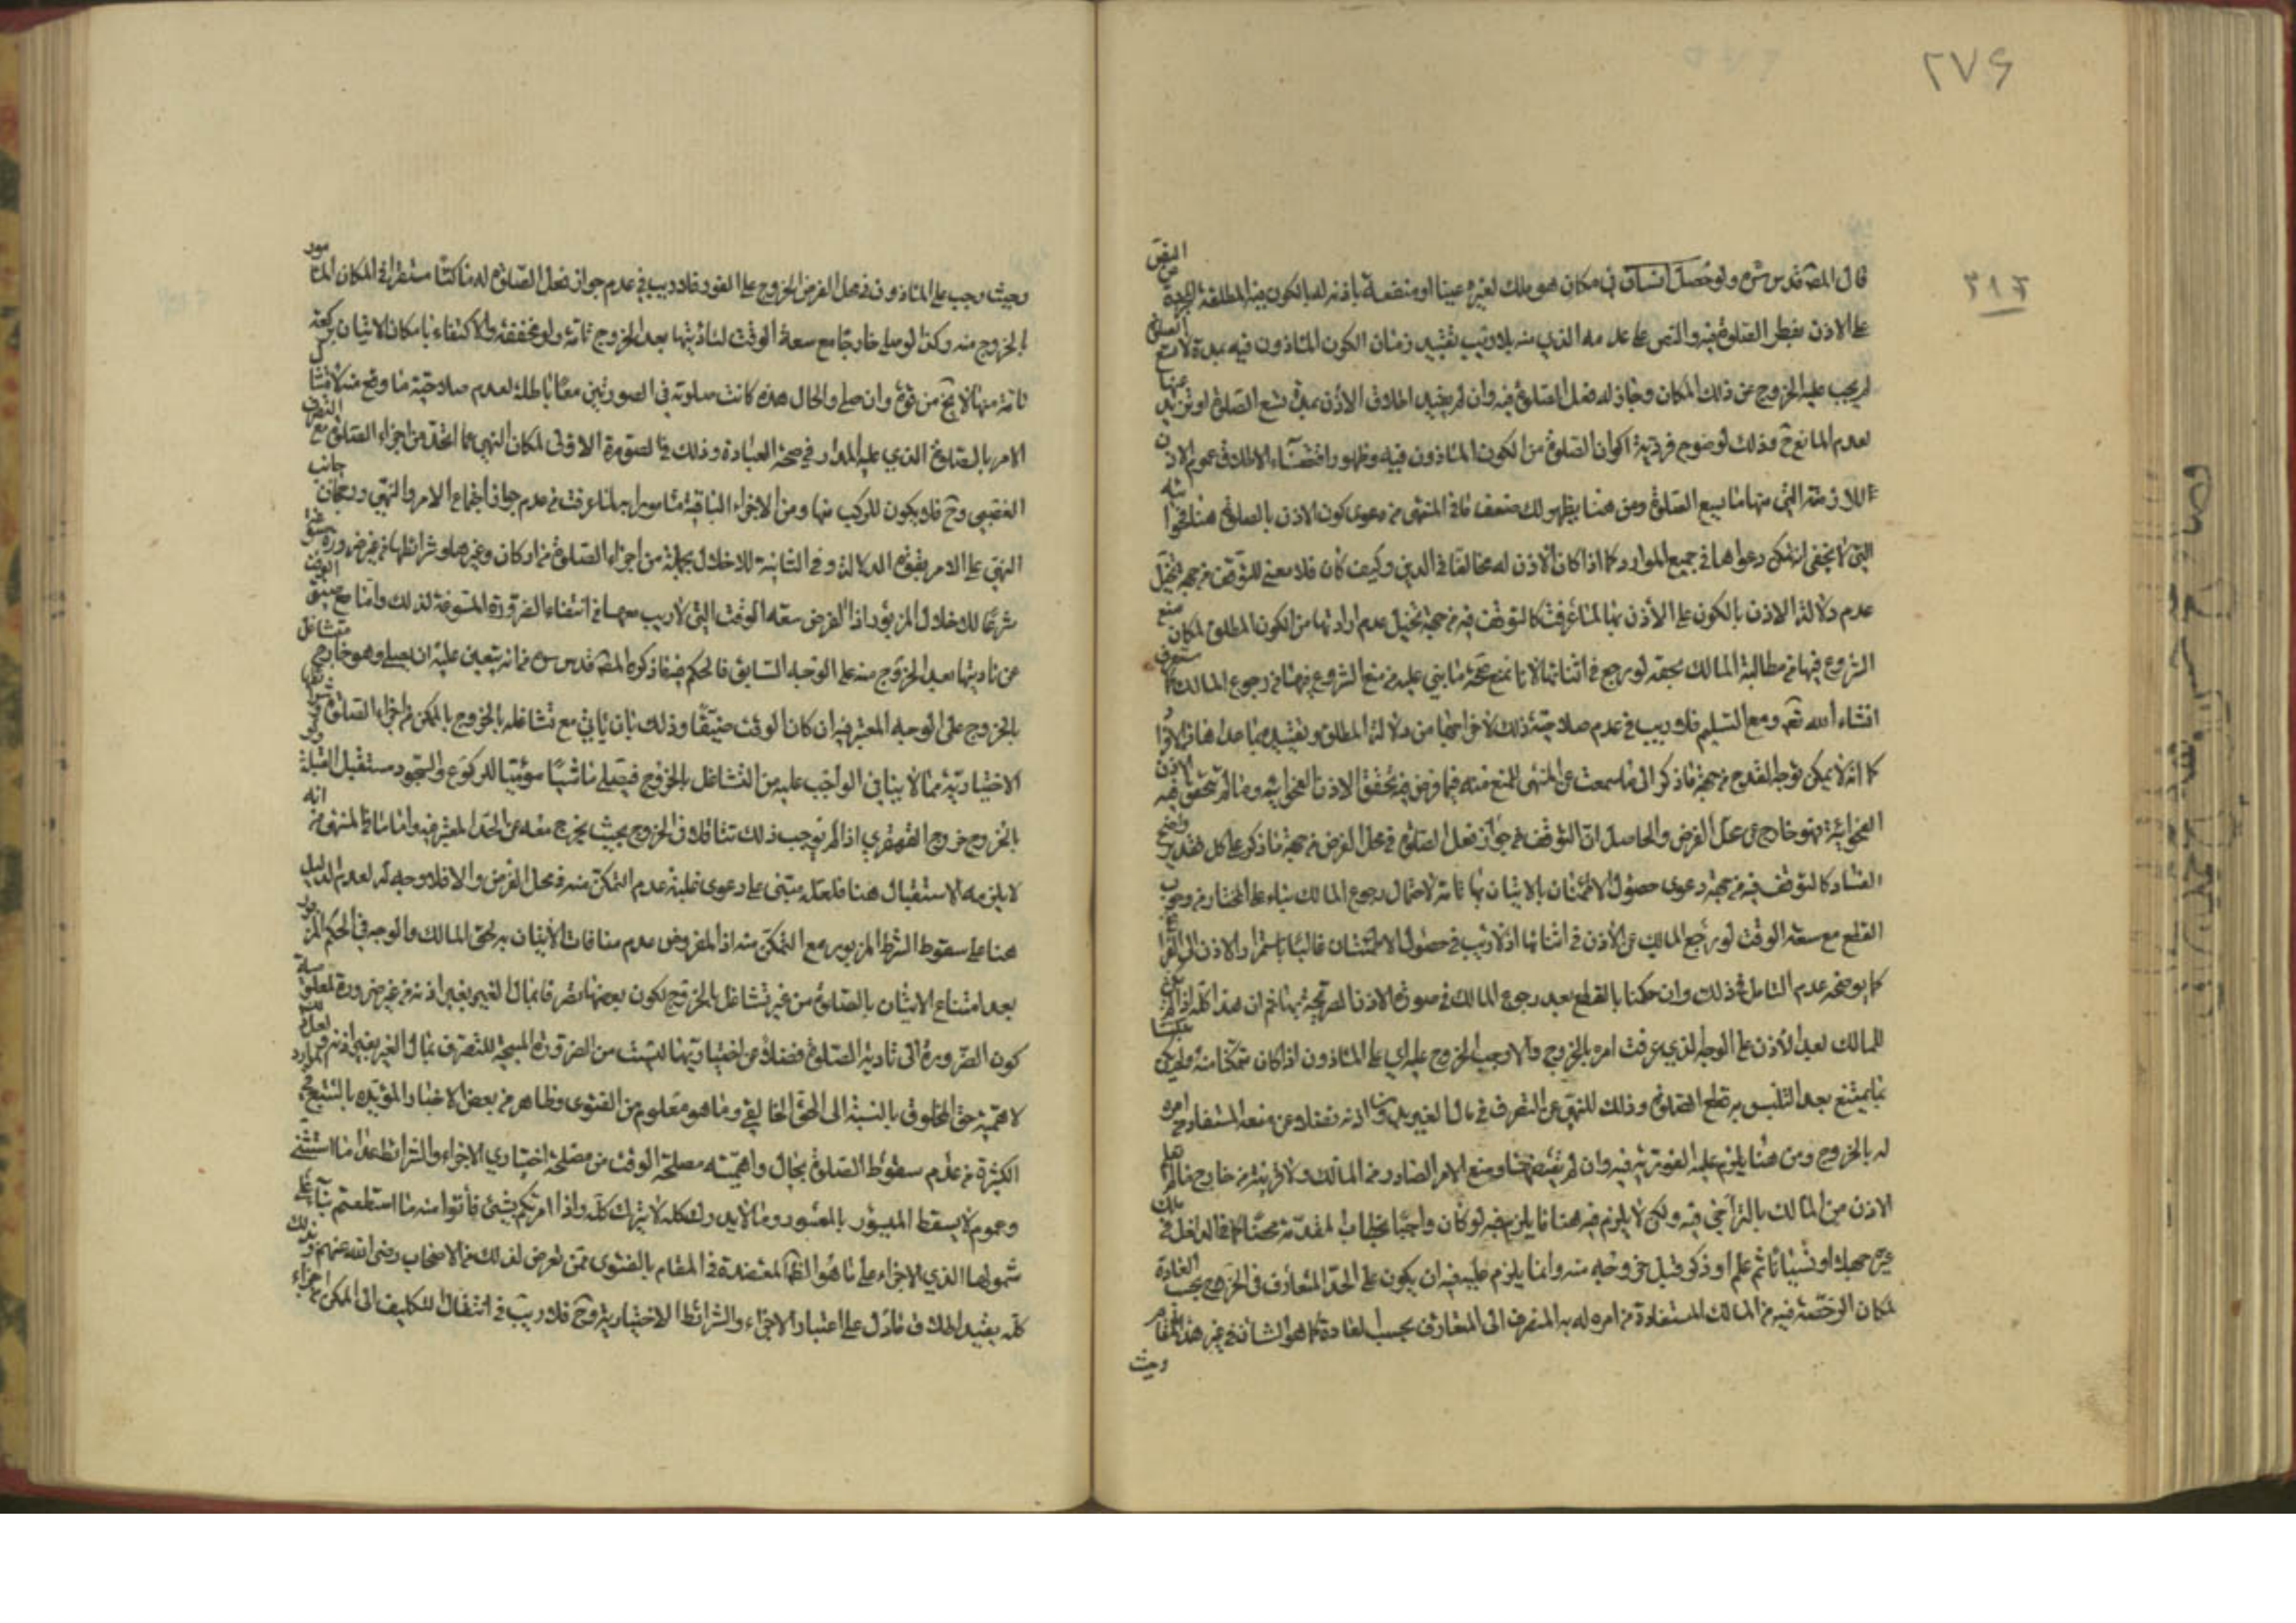 ٢٧٦
٣١٣
قال المصـ قدس سره ولو حصل انسان في مكان هو ملك لغيره عينا او منفعة باذنه له بالكون فيه المطلقة
على الاذن بفعل الصلوة فيه والنص على عدمه الذي منه بلا ريب تقييد زمان الكون الماذون فيه بمدة لا تسع الصلوة
لم يجب عليه الخروج عن ذلك المكان وجاز له فعل الصلوة فيه وان لم يقيد اطلاق الاذن بمدة تسع الصلوة او تزيد عنها
لعدم المانع ح وذلك لوضوح فردية اكوان الصلوة من الكون الماذون فيه وظهور اقتضاء الاطلاق عموم الاذن
التي منها ما يسع الصلوة ومن هنا يظهر لك ضعف ما في المنتهى من دعوى كون الاذن بالصلوة هنا
التي لا يخفى دعواها في جميع الموارد كما اذا كان الاذن له مخالفا في الدين وكيف كان فلا معنى للتوقف من جهة تخيل
عدم دلالة الاذن بالكون على الاذن بها لما عرفت كالتوقف فيه من جهة تخيل عدم ارادتها من الكون المطلق لمكان منع
الشروع فيها من مطالبة المالك بحقه لو رجع في اثنائها لانا نمنع صحة ما بني عليه من منع الشروع فيها من رجوع المالك كما ستعرف
انشاء الله تعـ ومع التسليم فلا ريب في عدم صلاحية ذلك لاخراجها من دلالة المطلق وتقييده بما عداها
كما انه لا يمكن توجه القدح من جهة ما ذكر الى ما سمعت عن المنتهى للمنع منه فيما فرض فيه تحقق الاذن الفحوائية وما لم يتحقق فيه الاذن
الفحوائية فهو خارج عن محل الفرض والحاصل ان التوقف في جواز فعل الصلوة في محل الفرض من جهة ما ذكر على كل تقدير واضح
الفساد كالتوقف فيه من جهة دعوى حصول الاطمئنان بالاتيان بها تامة لاحتمال رجوع المالك بناء على المختار من وجوب
القطع مع سعة الوقت لو رجع المالك عن الاذن في اثنائها اذ لا ريب في حصول الاطمئنان غالبا باستمرار الاذن الى
كما يوضحه عدم التامل في ذلك وان حكمنا بالقطع بعد رجوع المالك في صورة الاذن الصريحة بها ثم ان هذا كله
للمالك بعد الاذن على الوجه الذي عرفت امره بالخروج والا وجب الخروج عليه اي على الماذون اذا كان متمكنا منه ولم يكن
مما يمتنع بعد التلبس به قطع الصلوة وذلك للنهي عن التصرف في مال الغير بدون اذنه فضلا عن منعه المستفاد من امره
له بالخروج ومن هنا يلزم عليه الفورية فيه وان لم يقتضها وضع الامر الصادر من المالك ولا قرينة من خارج
الاذن من المالك بالتراخي فيه ولكن لا يلزم فيه هنا ما يلزم فيه لو كان واجبا بخطاب المقدمة محضا كما في الداخل في
غيره جهلا او نسيانا ثم علم او ذكر قبل خروجه منه وانما يلزم عليه فيه ان يكون على الحد المتعارف في الخروج بحسب العادة
لمكان الرخصة فيه من المالك المستفادة من امره له به المنصرف الى المتعارف بحسب العادة كما هو الشان في غير هذا المقام
وحيث
وحيث وجب على الماذون في محل الفرض الخروج على الفور فلا ريب في عدم جواز فعل الصلوة له ماكثا مستقرا في المكان المامور
بالخروج منه وكذا لو صلى خارجا مع سعة الوقت لتاديتها بعد الخروج تامة ولو مخففة والاكتفاء بامكان الاتيان بركعة
تامة منها لا يخ من قوة وان صلى والحال هذه كانت صلوته في الصورتين معا باطلة لعدم صلاحية ما وقع منه
الامر بالصلوة الذي عليه المدار في صحة العبادة وذلك في الصورة الاولى لمكان النهي عما اتحد من اجزاء الصلوة مع التصرف
الغصبي وح فلا يكون المركب منها ومن الاجزاء الباقية مامورا به لما عرفت من عدم جواز اجتماع الامر والنهي ورجحان جانب
النهي على الامر بقوة الدلالة وفي الثانية للاخلال بجملة من اجزاء الصلوة من اركان وغيرها وشرائطها من غير ضرورة
شرعا للاخلال المزبور اذ الفرض سعة الوقت التي لا ريب معها في انتفاء الضرورة المسوغة لذلك واما مع ضيق الوقت
عن تاديتها بعد الخروج منه على الوجه السابق فالحكم فيه ما ذكره المصـ قدس سره من انه يتعين عليه ان يصلي وهو خارج متشاغل
بالخروج على الوجه المعتبر فيه ان كان الوقت ضيقا وذلك بان ياتي مع تشاغله بالخروج بالممكن من اجزاء الصلوة
الاختيارية مما لا ينافي الواجب عليه من التشاغل بالخروج فيصلي ماشيا مؤميا للركوع والسجود مستقبل القبلة
بالخروج خروج القهقرى اذا لم يوجب ذلك تثاقلا في الخروج بحيث يخرج معه عن الحد المعتبر فيه واما ما في المنتهى من انه
لا يلزمه الاستقبال هنا فلعله مبني على دعوى غلبة عدم التمكن منه في محل الفرض والا فلا وجه له لعدم الدليل
هنا على سقوط الشرط المزبور مع التمكن منه اذ المفروض عدم منافات الاتيان به لحق المالك والوجه في الحكم المزبور
بعد امتناع الاتيان بالصلوة من غير تشاغل بالخروج لكون بعضها تصرفا بمال الغير بغير اذنه من غير ضرورة لمعلومية
كون الضرورة الى تادية الصلوة فضلا عن اختياريتها ليست من الضرورة المبيحة للتصرف بمال الغير بغير اذنه
لاهمية حق المخلوق بالنسبة الى الحق الخالقي وما هو معلوم من الفتوى وظاهر من بعض الاخبار المؤيده بالتتبع في موارد
الكثيرة من عدم سقوط الصلوة بحال واهمية مصلحة الوقت من مصلحة اختياري الاجزاء والشرائط عدا ما استثني
وعموم لا يسقط الميسور بالمعسور وما لا يدرك كله لا يترك كله واذا امرتكم بشيء فاتوا منه ما استطعتم بناء على
شمولها الذي الاجزاء على ما هو الظ المعتضدة في المقام بالفتوى ممن تعرض لذلك من الاصحاب رضي الله عنهم وبذلك
كله يقيد اطلاق ما دل على اعتبار الاجزاء والشرائط الاختيارية وح فلا ريب في انتقال التكليف الى الممكن من اجزاء